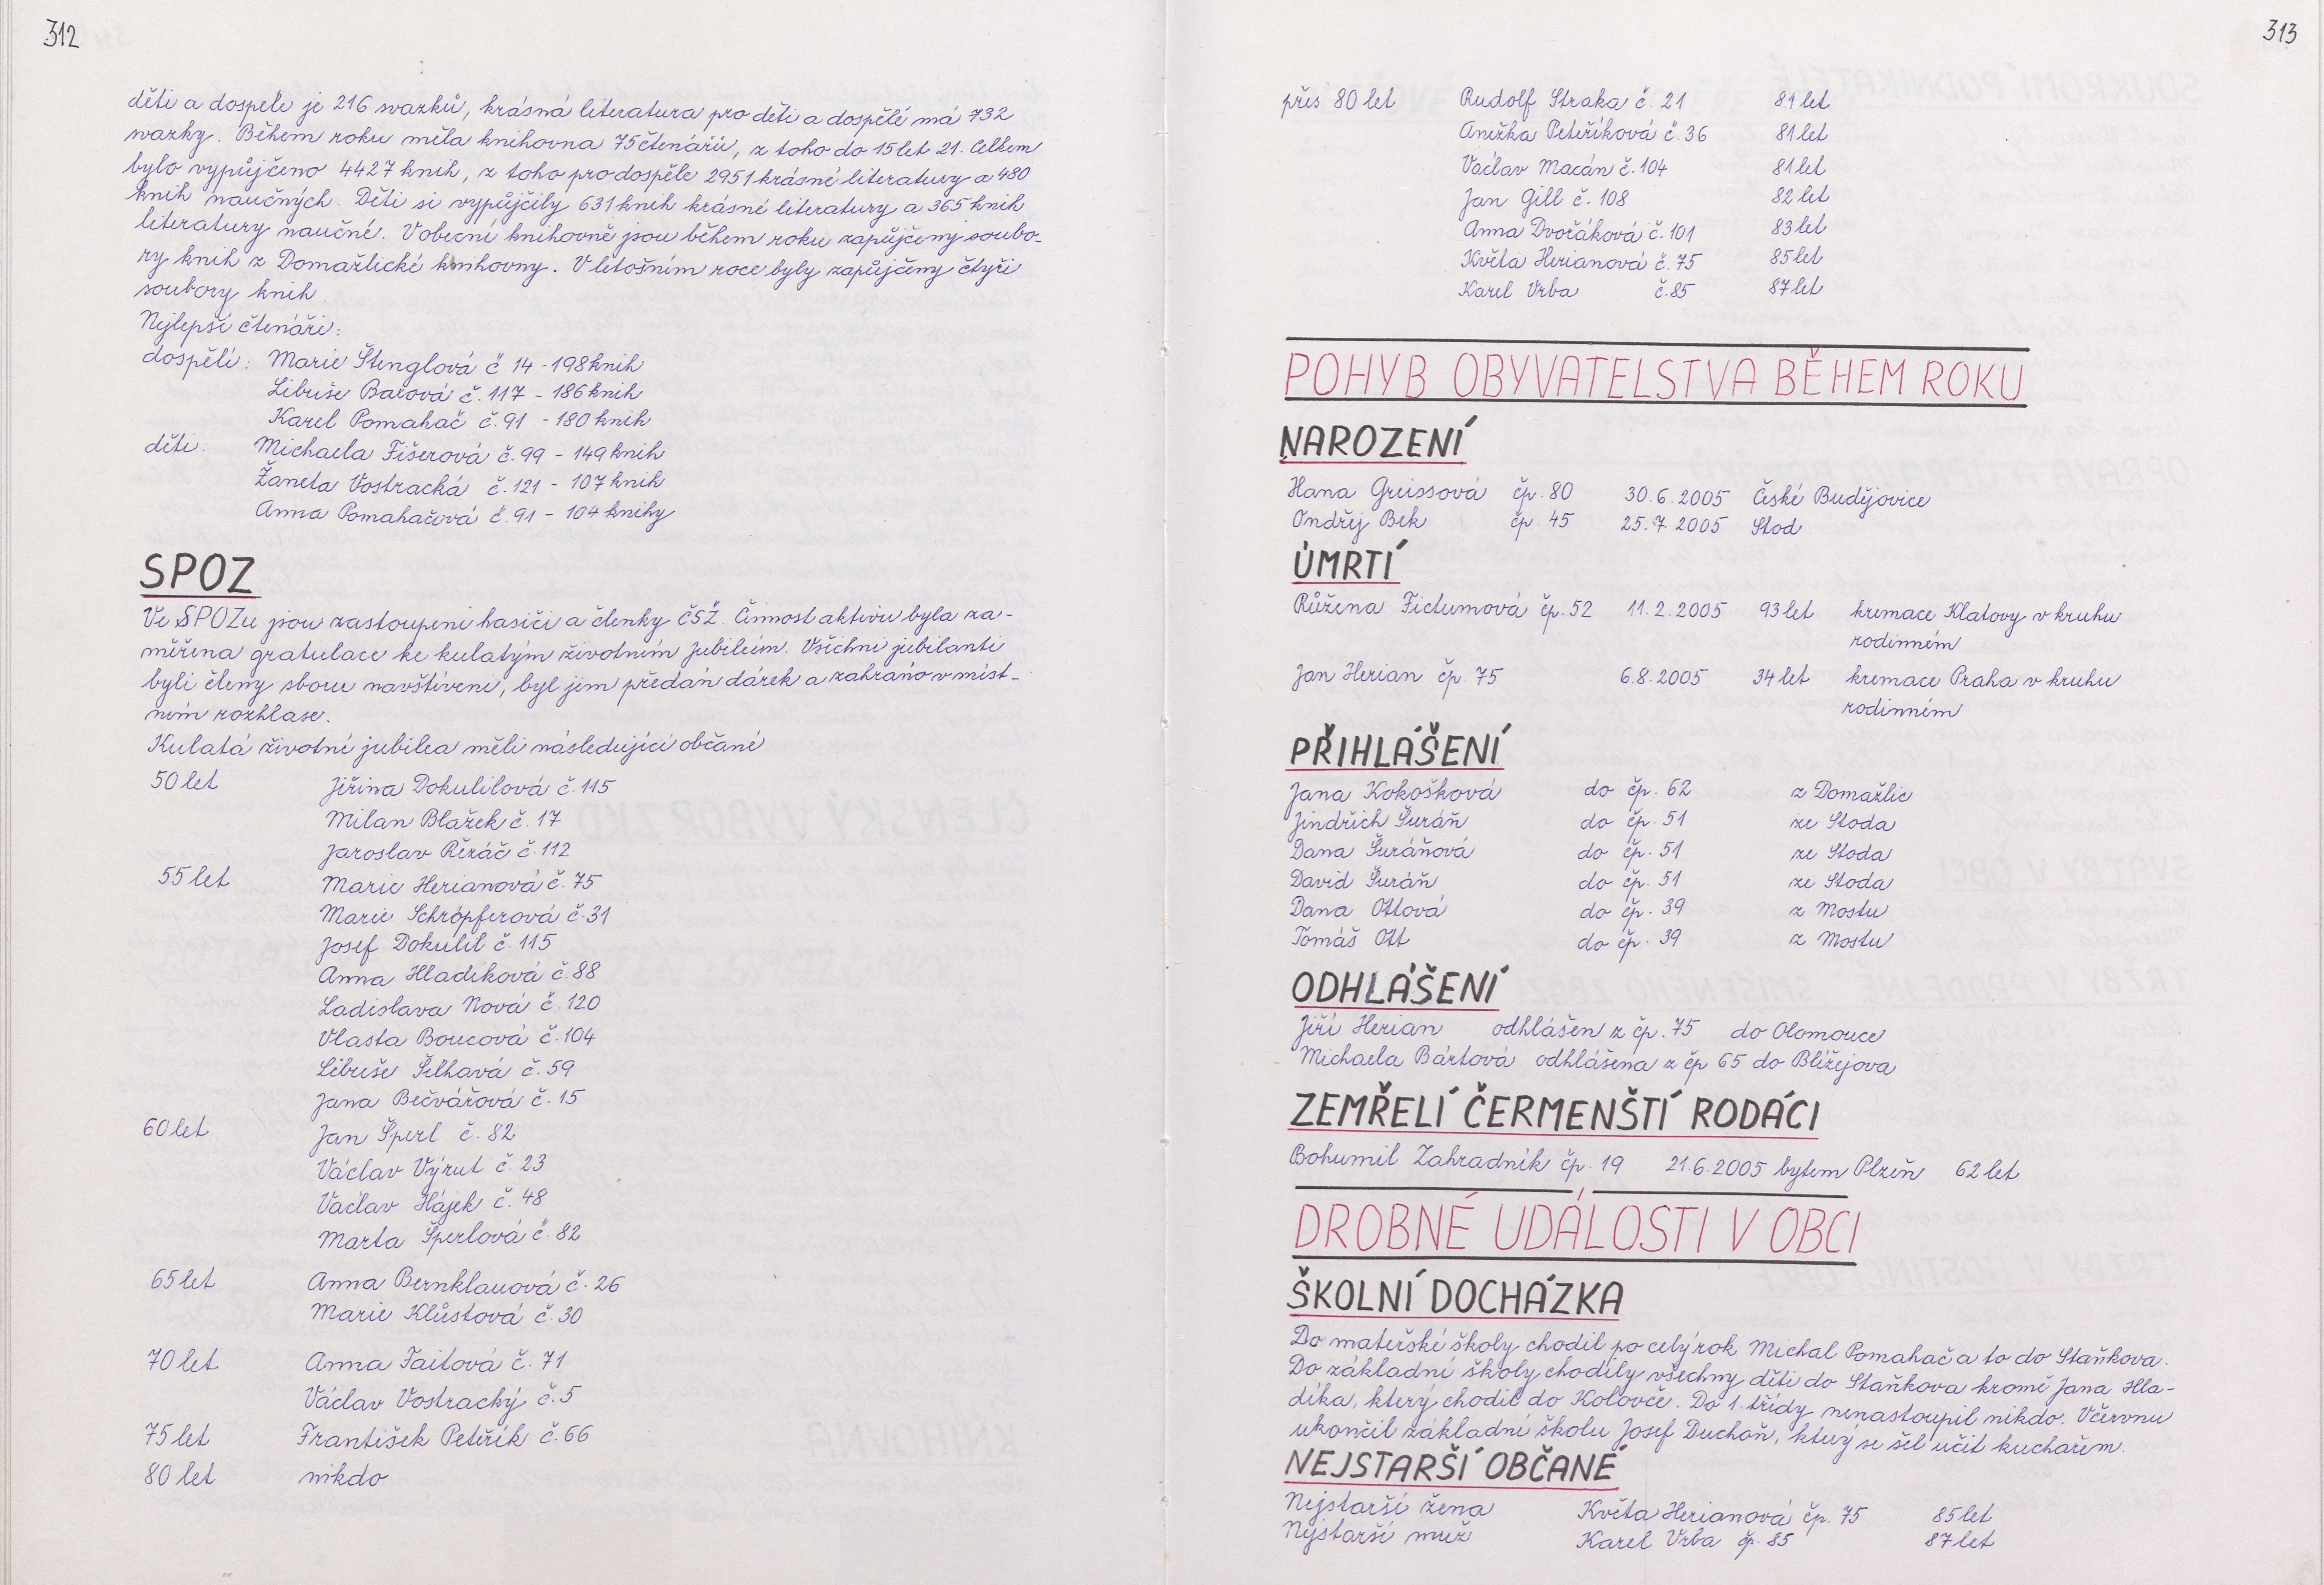 312
děti a dospělé je 216 svazků, krásná literatura pro děti a dospělé má 732
svazky. Během roku měla knihovna 75 čtenářů, z toho do 15 let 21. Celkem
bylo vypůjčeno 4427 knih, z toho pro dospělé 2951 krásné literatury a 480
knih naučných. Děti si vypůjčily 631 knih krásné literatury a 365 knih
literatury naučné. V obecní knihovně jsou během roku zapůjčeny soubo-
ry knih z Domažlické knihovny. V letošním roce byly zapůjčeny čtyři
soubory knih
Nejlepší čtenáři:
dospělí: Marie Štenglová č. 14 - 198 knih
Libuše Baxová č. 117 - 186 knih
Karel Pomahač č. 91 - 180 knih
děti: Michaela Fišerová č. 99 - 149 knih
Žaneta Vostracká č. 121 - 107 knih
Anna Pomahačová č. 91 - 104 knihy
SPOZ
Ve SPOZu jsou zastoupeni hasiči a členky ČSŽ. Činnost aktivu byla za-
měřena gratulace ke kulatým životním jubileím. Všichni jubilanti
byli členy sboru navštíveni, byl jim předán dárek a zahráno v míst-
ním rozhlase.
Kulatá životní jubilea měli následující občané
50 let Jiřina Dokulilová č. 115
Milan Blažek č. 17
Jaroslav Řezáč č. 112
55 let Marie Herianová č. 75
Marie Schröpferová č. 31
Josef Dokulil č. 115
Anna Hladíková č. 88
Ladislava Nová č. 120
Vlasta Boucová č. 104
Libuše Šelhavá č. 59
Jana Bečvářová č. 15
60 let Jan Šperl č. 82
Václav Výrut č. 23
Václav Hájek č. 48
Marta Šperlová č. 82
65 let Anna Bernklauová č. 26
Marie Klůstová č. 30
70 let Anna Taitová č. 71
Václav Vostracký č. 5
75 let František Peteřík č. 66
80 let nikdo
313
přes 80 let Rudolf Straka č. 21 81 let
Anežka Peteříková č. 36 81 let
Václav Macán č. 104 81 let
Jan Gill č. 108 82 let
Anna Dvořáková č. 101 83 let
Květa Herianová č. 75 85 let
Karel Vrba č. 85 87 let
POHYB OBYVATELSTVA BĚHEM ROKU
NAROZENÍ
Hana Greissová čp. 80 30.6.2005 České Budějovice
Ondřej Bek čp. 45 25.7.2005 Stod
ÚMRTÍ
Růžena Fictumová čp. 52 11.2.2005 93 let kremace Klatovy v kruhu
rodinném
Jan Herian čp. 75 6.8.2005 34 let kremace Praha v kruhu
rodinném
PŘIHLÁŠENÍ
Jana Kokošková do čp. 62 z Domažlic
Jindřich Šuráň do čp. 51 ze Stoda
Dana Šuráňová do čp. 51 ze Stoda
David Šuráň do čp. 51 ze Stoda
Dana Ottová do čp. 39 z Mostu
Tomáš Ott do čp. 39 z Mostu
ODHLÁŠENÍ
Jiří Herian odhlášen z čp. 75 do Olomouce
Michaela Bártová odhlášena z čp 65 do Blížejova
ZEMŘELÍ ČERMENŠTÍ RODÁCI
Bohumil Zahradník čp. 19 21.6.2005 bytem Plzeň 62 let
DROBNÉ UDÁLOSTI V OBCI
ŠKOLNÍ DOCHÁZKA
Do mateřské školy chodil po celý rok Michal Pomahač a to do Staňkova.
Do základní školy chodily všechny děti do Staňkova kromě Jana Hla-
díka, který chodil do Kolovče. Do 1. třídy nenastoupil nikdo. V červnu
ukončil základní školu Josef Duchoň, který se šel učit kuchařem.
NEJSTARŠÍ OBČANÉ
Nejstarší žena Květa Herianová čp. 75 85 let
Nejstarší muž Karel Vrba čp. 85 87 let